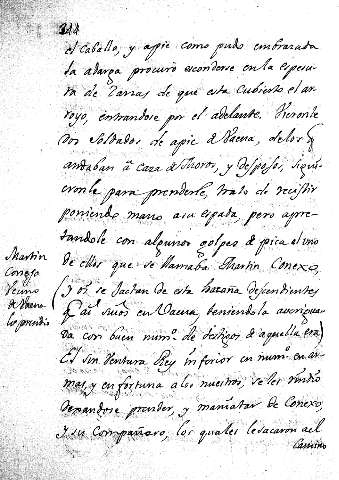 314
el Caballo, y apie como pudo embrazada
la adarga procuró esconderse en la espesu
ra de Zarzas de que esta Cubierto el ar
royo, entrandose por el adelante. Vieronle
dos Soldados de apie de Vaena, de los q̃
andaban a caza de Moros, y despojos, siguie
ronle para prenderle, trato de resistir
poniendo mano a su espada, pero apre
tandole con algunos golpes de pica el uno
de ellos que se llamaba Martin Conexo,
Martin
Conejo
Vecino
de Vaena
lo prendio
(y oy se jactan de esta hazaña descendientes
suios en Vaena, teniendola averigua
da con buen num.º de testigos de aquella era)
El sin Ventura Rey inferior en num.º en ar
mas, y en fortuna a los nuestros, se les rindio
dexandose prender, y maniatar de Conexo,
y su Compañero, los quales le sacaron al
Camino